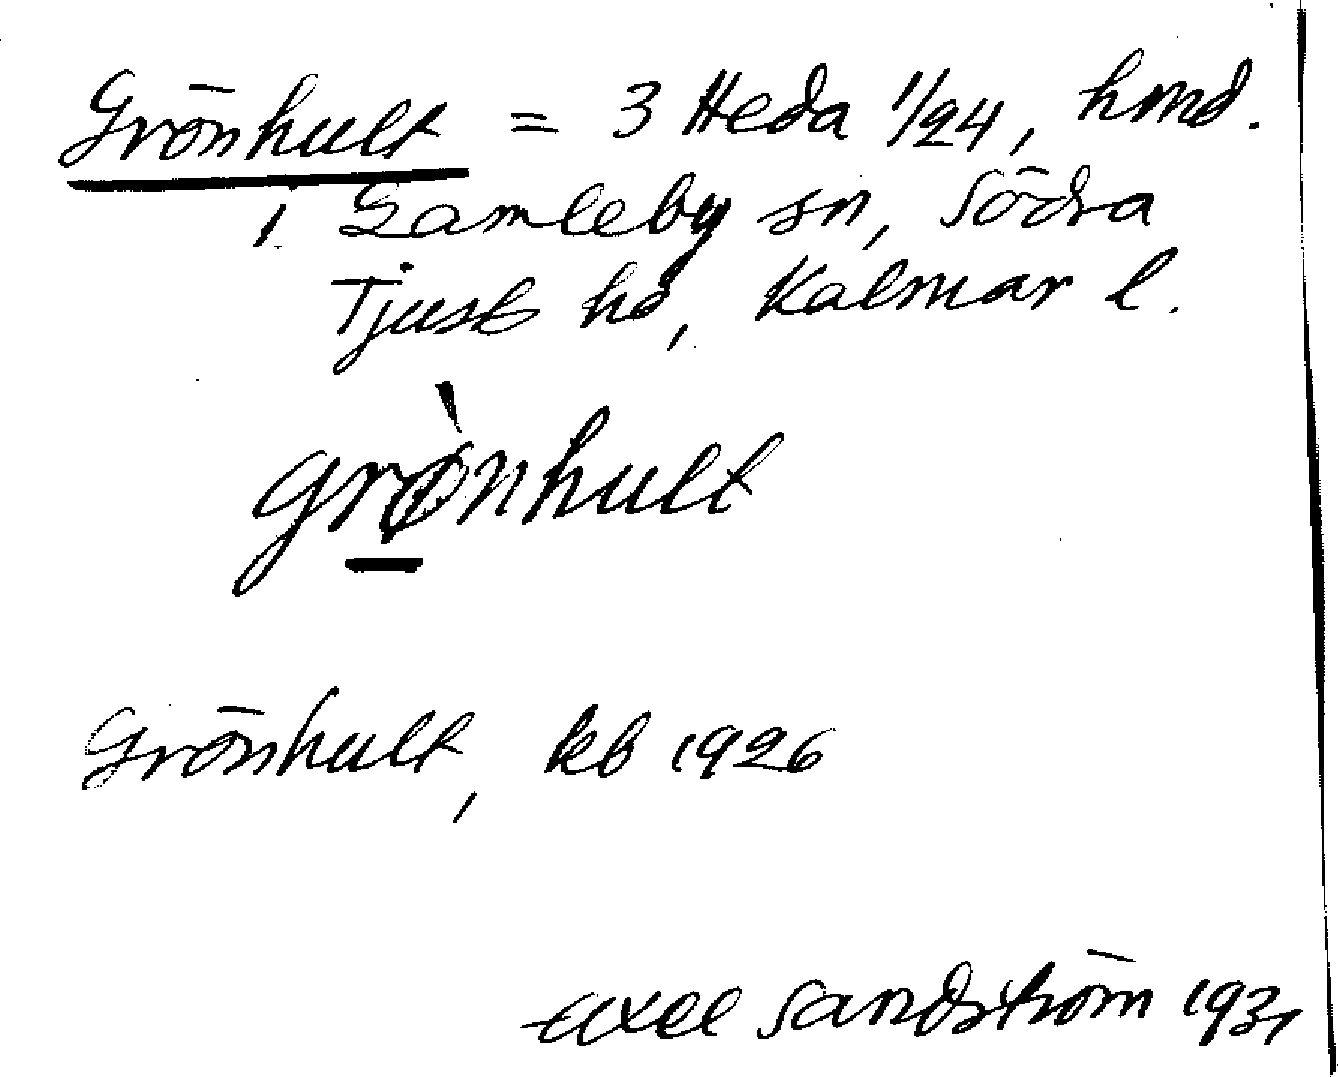 Grönhult = 3 Heda 1/24, hmd.
i Gamleby sn, Södra
Tjust hd, Kalmar l.
grö̀nhult
Grönhult, kb 1926
Axel Sandström 1931